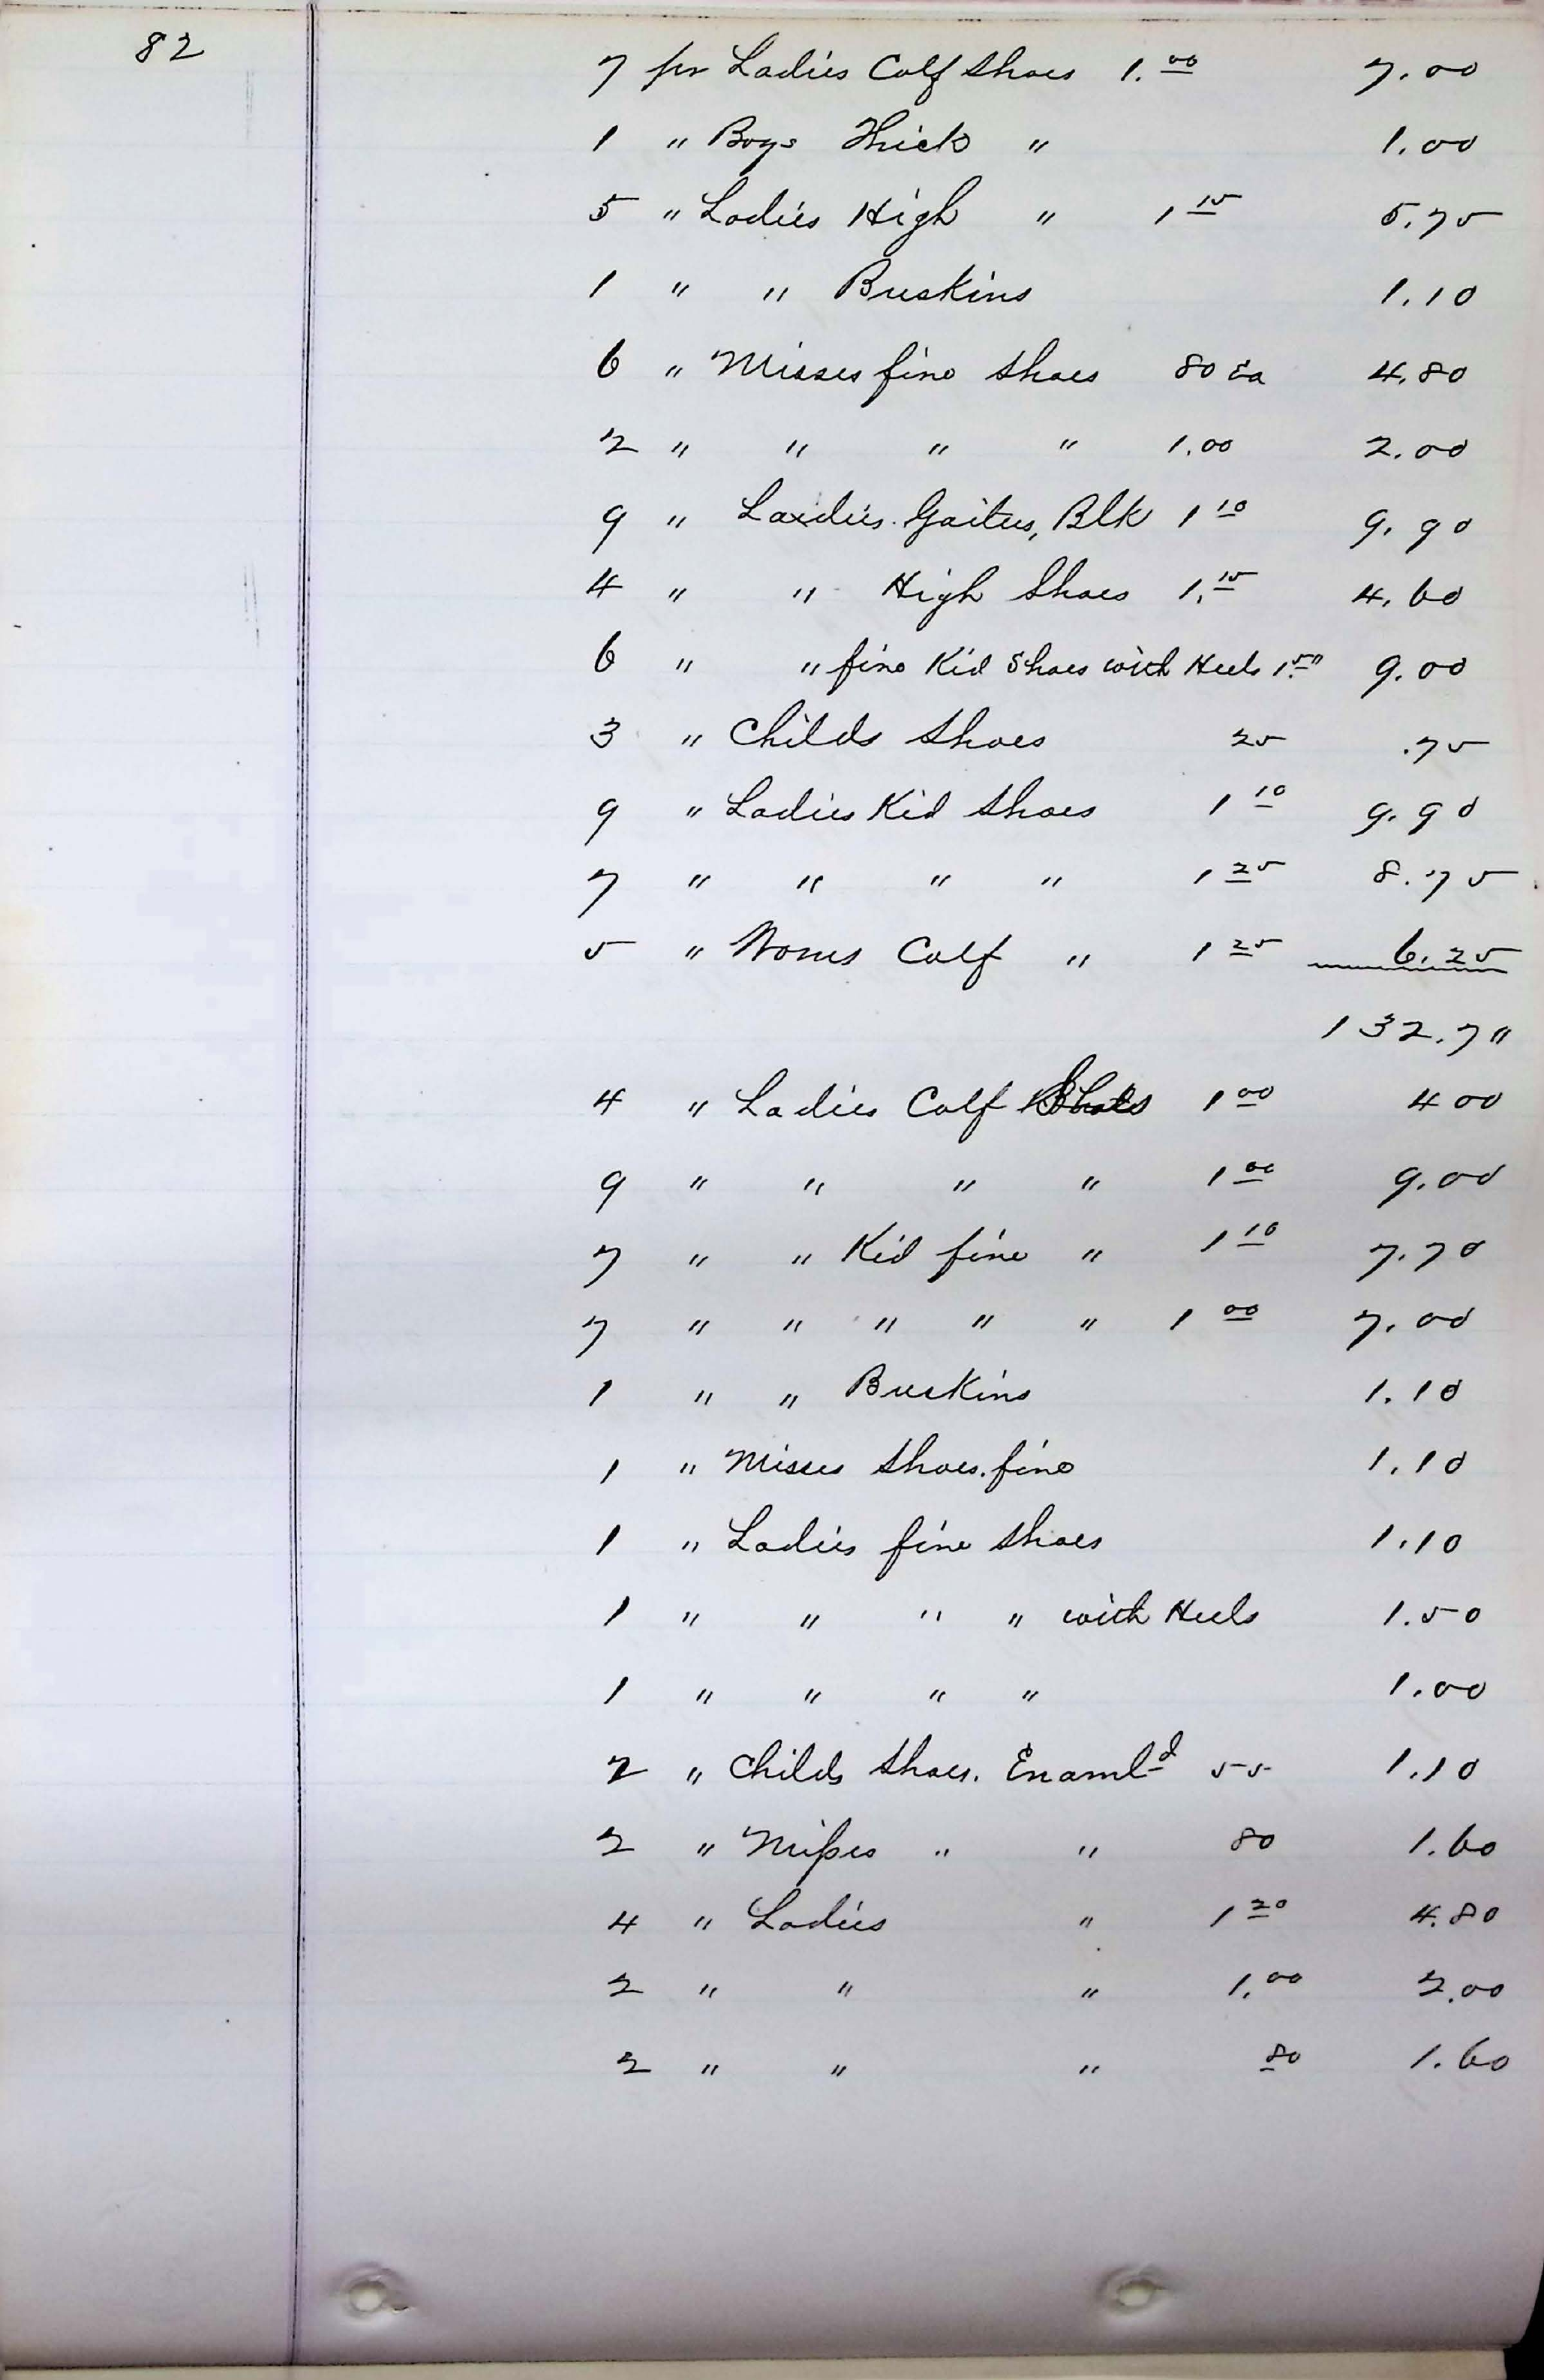 82
7 pr Ladies Calf Shoes 1.00 7.00
1 " Boys Thick " 1.00
5 " Ladies High " 1 15 5.75
1 " " Buskins 1.10
6 " Misses fine Shoes 80 Ea 4.80
2 " " " " 1.00 2.00
9 " Laidies. Gaiters, Blk 1 10 9.90
4 " " High Shoes 1.15 4.60
6 " " fine Kid Shoes with Heels 1.5" 9.00
3 " Childs Shoes 25 .75
9 " Ladies Kid Shoes 1 10 9.90
7 " " " " 1 25 8.75
5 " Woms Calf " 1 25 6.25
132.7"
4 " Ladies Calf Shoes 1 00 4 00
9 " " " " 1 00 9.00
7 " " Kid fine " 1 10 7.70
7 " " " " " 1 00 7.00
1 " " Buskins 1.10
1 " Misses Shoes. fine 1.10
1 " Ladies fine Shoes 1.10
1 " " " " with Heels 1.50
1 " " " " 1.00
2 " Childs Shoes. Enamld 55 1.10
2 " Misses " " 80 1.60
4 " Ladies " 1 20 4.80
2 " " " 1.00 2.00
2 " " " 80 1.60